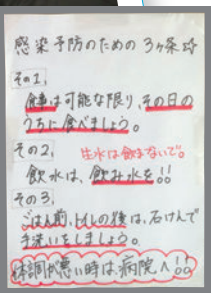 感染予防のための3ヶ条☆
その1,
食事は可能な限り、その日の
うちに食べましょう。
その2, 生水は飲まないで。
飲水は、飲み水を!!
その3,
ごはん前、トイレの後は、石けんで
手洗いをしましょう。
体調が悪い時は、病院へ!!